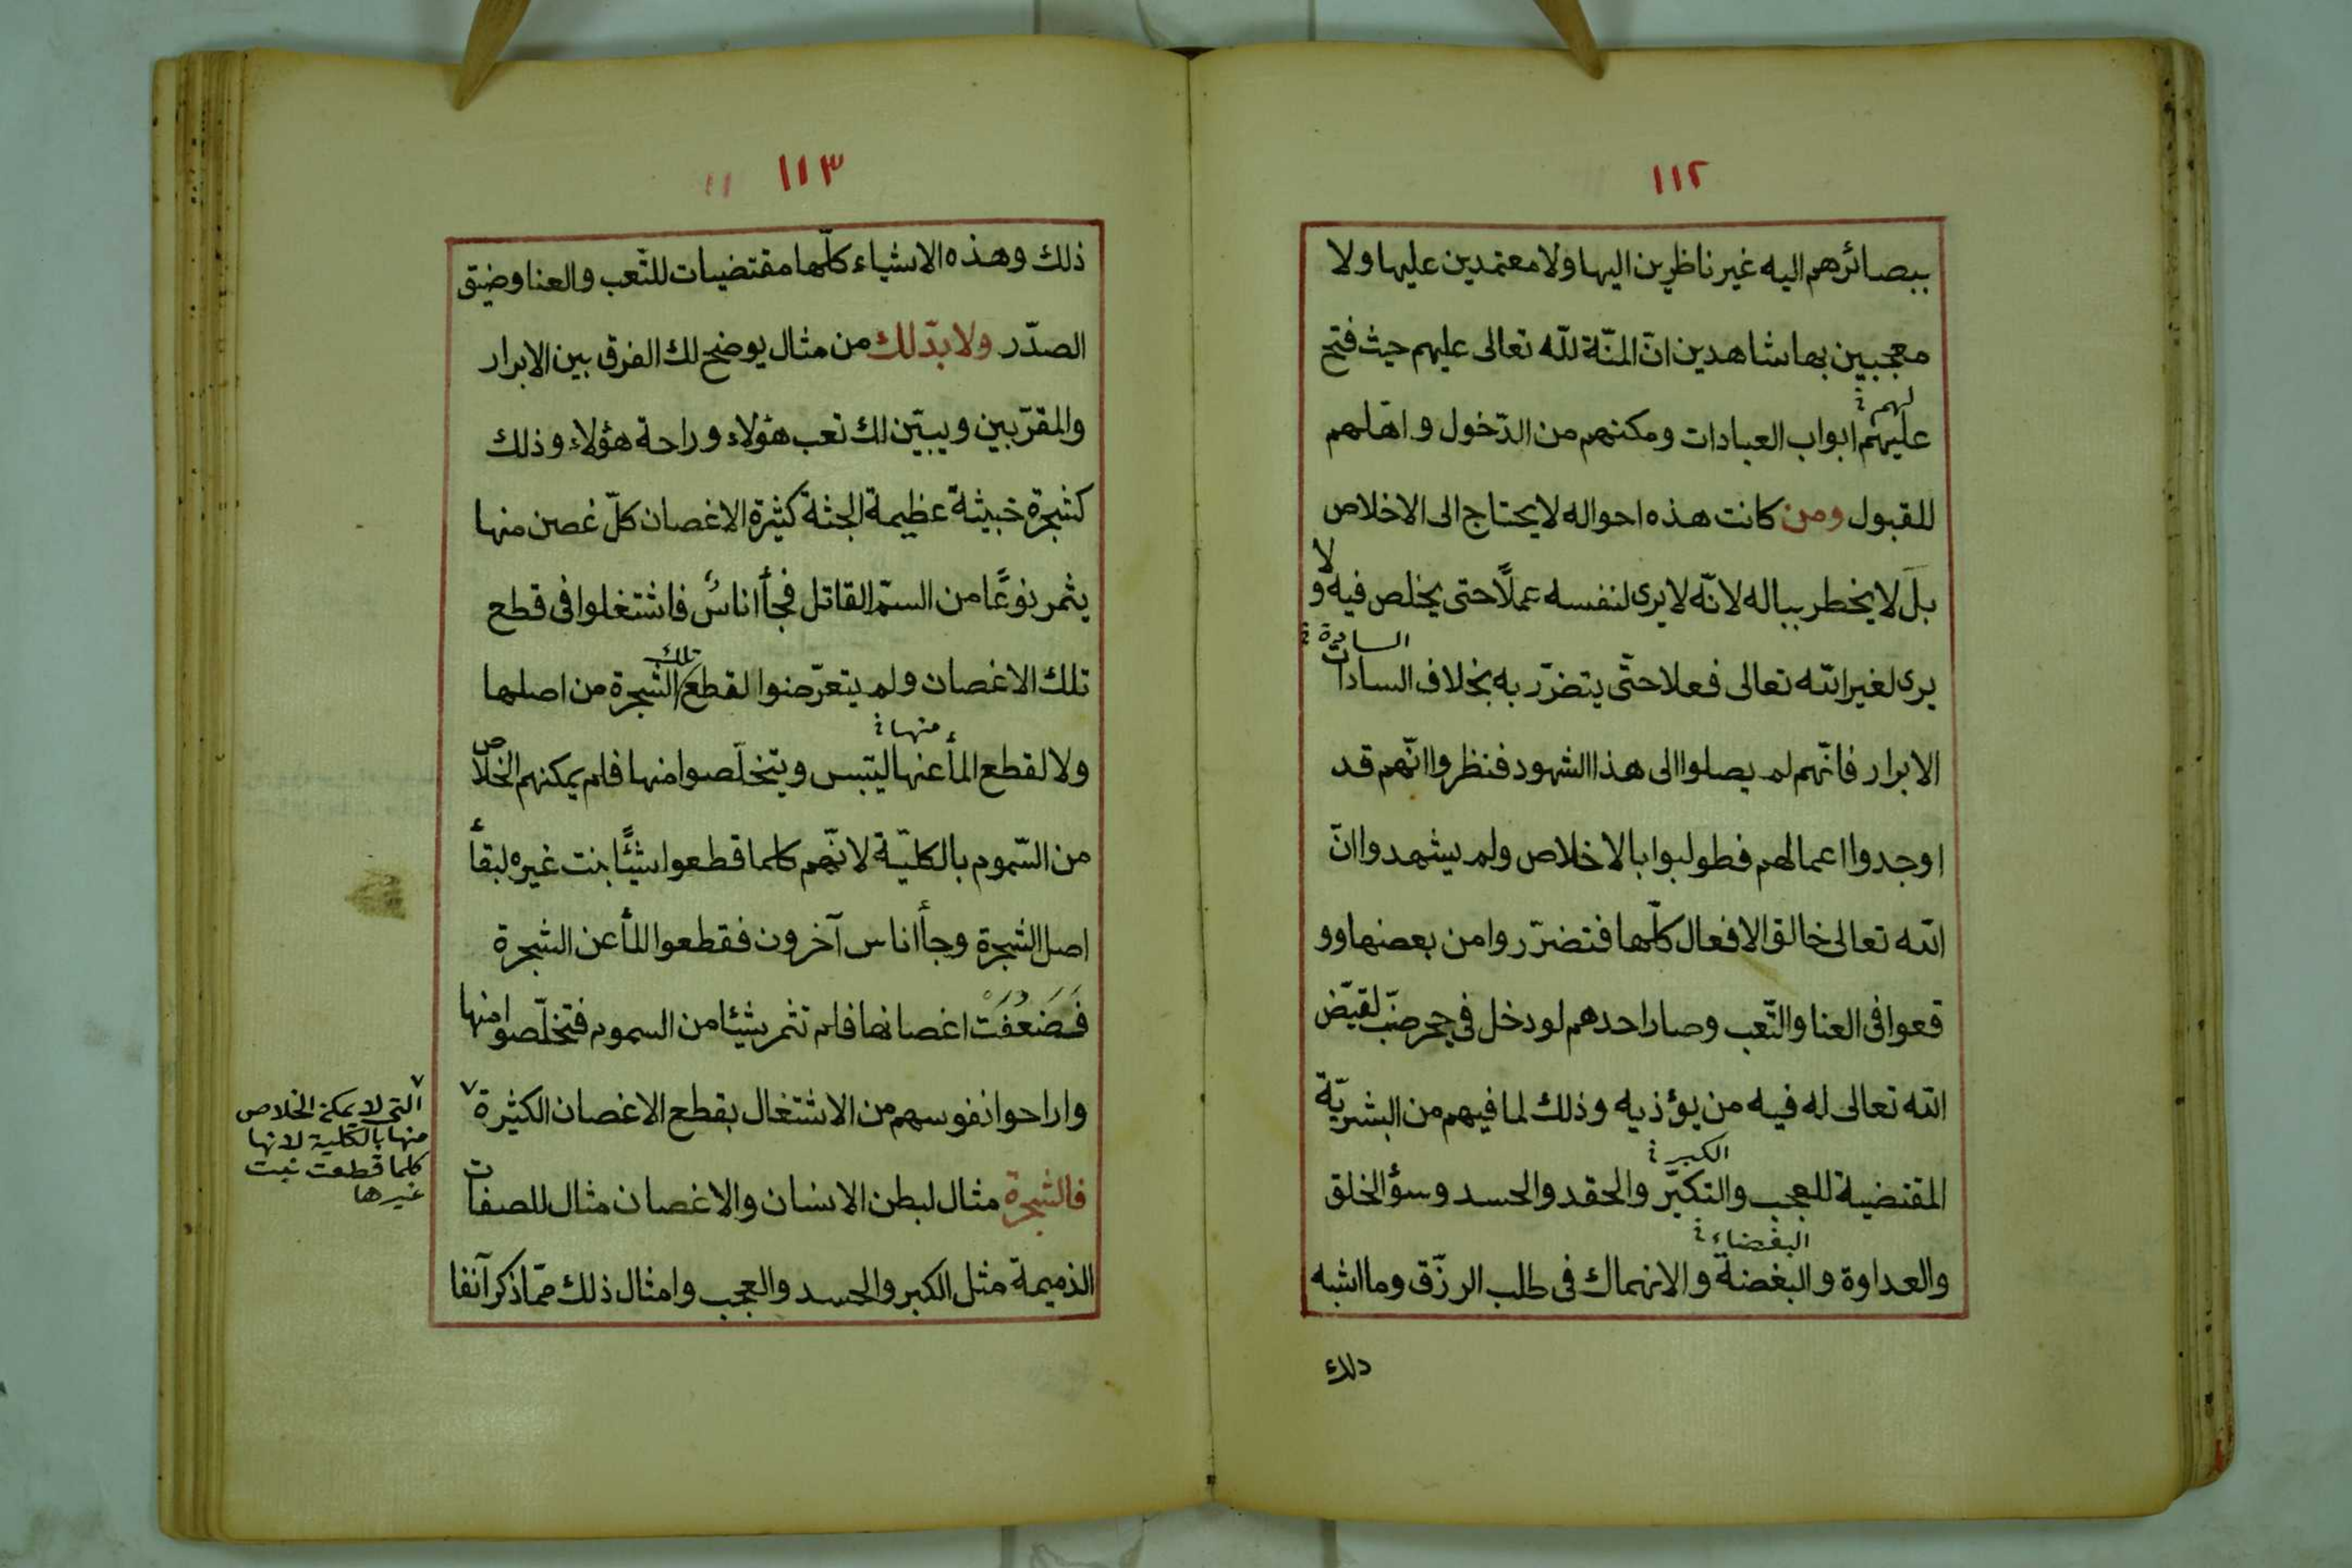 ١١٢
ببصائرهم اليه غير ناظرين اليها ولا معتمدين عليها ولا
معجبين بها شاهدين انّ المنّة للّه تعالى عليهم حيث فتح
لهم خ
عليهم ابواب العبادات ومكنهم من الدّخول واهّلهم
للقبول ومن كانت هذه احواله لا يحتاج الى الاخلاص
بل لا يخطر بباله لانّه لا يرى لنفسه عملًا حتى يخلص فيه ولا
السادة خ
يرى لغير اللّه تعالى فعلا حتّى يتضرّر به بخلاف السادات
الابرار فانّهم لم يصلوا الى هذا الشهود فنظروا انّهم قد
اوجدوا اعمالهم فطولبوا بالاخلاص ولم يشهدوا انّ
اللّه تعالى خالق الافعال كلّها فتضرّروا من بعضها وو
قعوا فى العنا والتّعب وصار احدهم لو دخل فى جحر ضبّ لقيّض
اللّه تعالى له فيه من يؤذيه وذلك لما فيهم من البشريّة
الكبر خ
المقتضية للعجب والتكبّر والحقد والحسد وسؤ الخلق
البغضاء خ
والعداوة والبغضة والانهماك فى طلب الرزّق وما اشبه
ذلك
١١٣
ذلك وهذه الاشياء كلّها مقتضيات للتّعب والعنا وضيق
الصدّر ولا بدّ لك من مثال يوضح لك الفرق بين الابرار
والمقرّبين ويبيّن لك تعب هؤلاء وراحة هؤلاء وذلك
كشجرة خبيثة عظيمة الجثة كثيرة الاغصان كلّ غصن منها
يثمر نوعًا من السمّ القاتل فجأ اناسٌ فاشتغلوا فى قطع
تلك
تلك الاغصان ولم يتعرّضوا لقطع الشجرة من اصلها
منها خ
ولا لقطع المأ عنها لتيبس ويتخلّصوا منها فلم يمكنهم الخلاص
من السّموم بالكليّة لانّهم كلما قطعوا شيئًا نبت غيره لبقأ
اصل الشجرة وجأ اناس آخرون فقطعوا المأ عن الشجرة
فَضَعُفَتْ اغصانها فلم تثمر شيئا من السموم فتخلّصوا منها
واراحوا نفوسهم من الاشتغال بقطع الاغصان الكثيرة
فالشجرة مثال لبطن الانسان والاغصان مثال للصفات
الذميمة مثل الكبر والحسد والعجب وامثال ذلك ممّا ذكر آنفا
التى لا يمكن الخلاص
منها بالكلية لانها
كلما قطعت نبت
غيرها